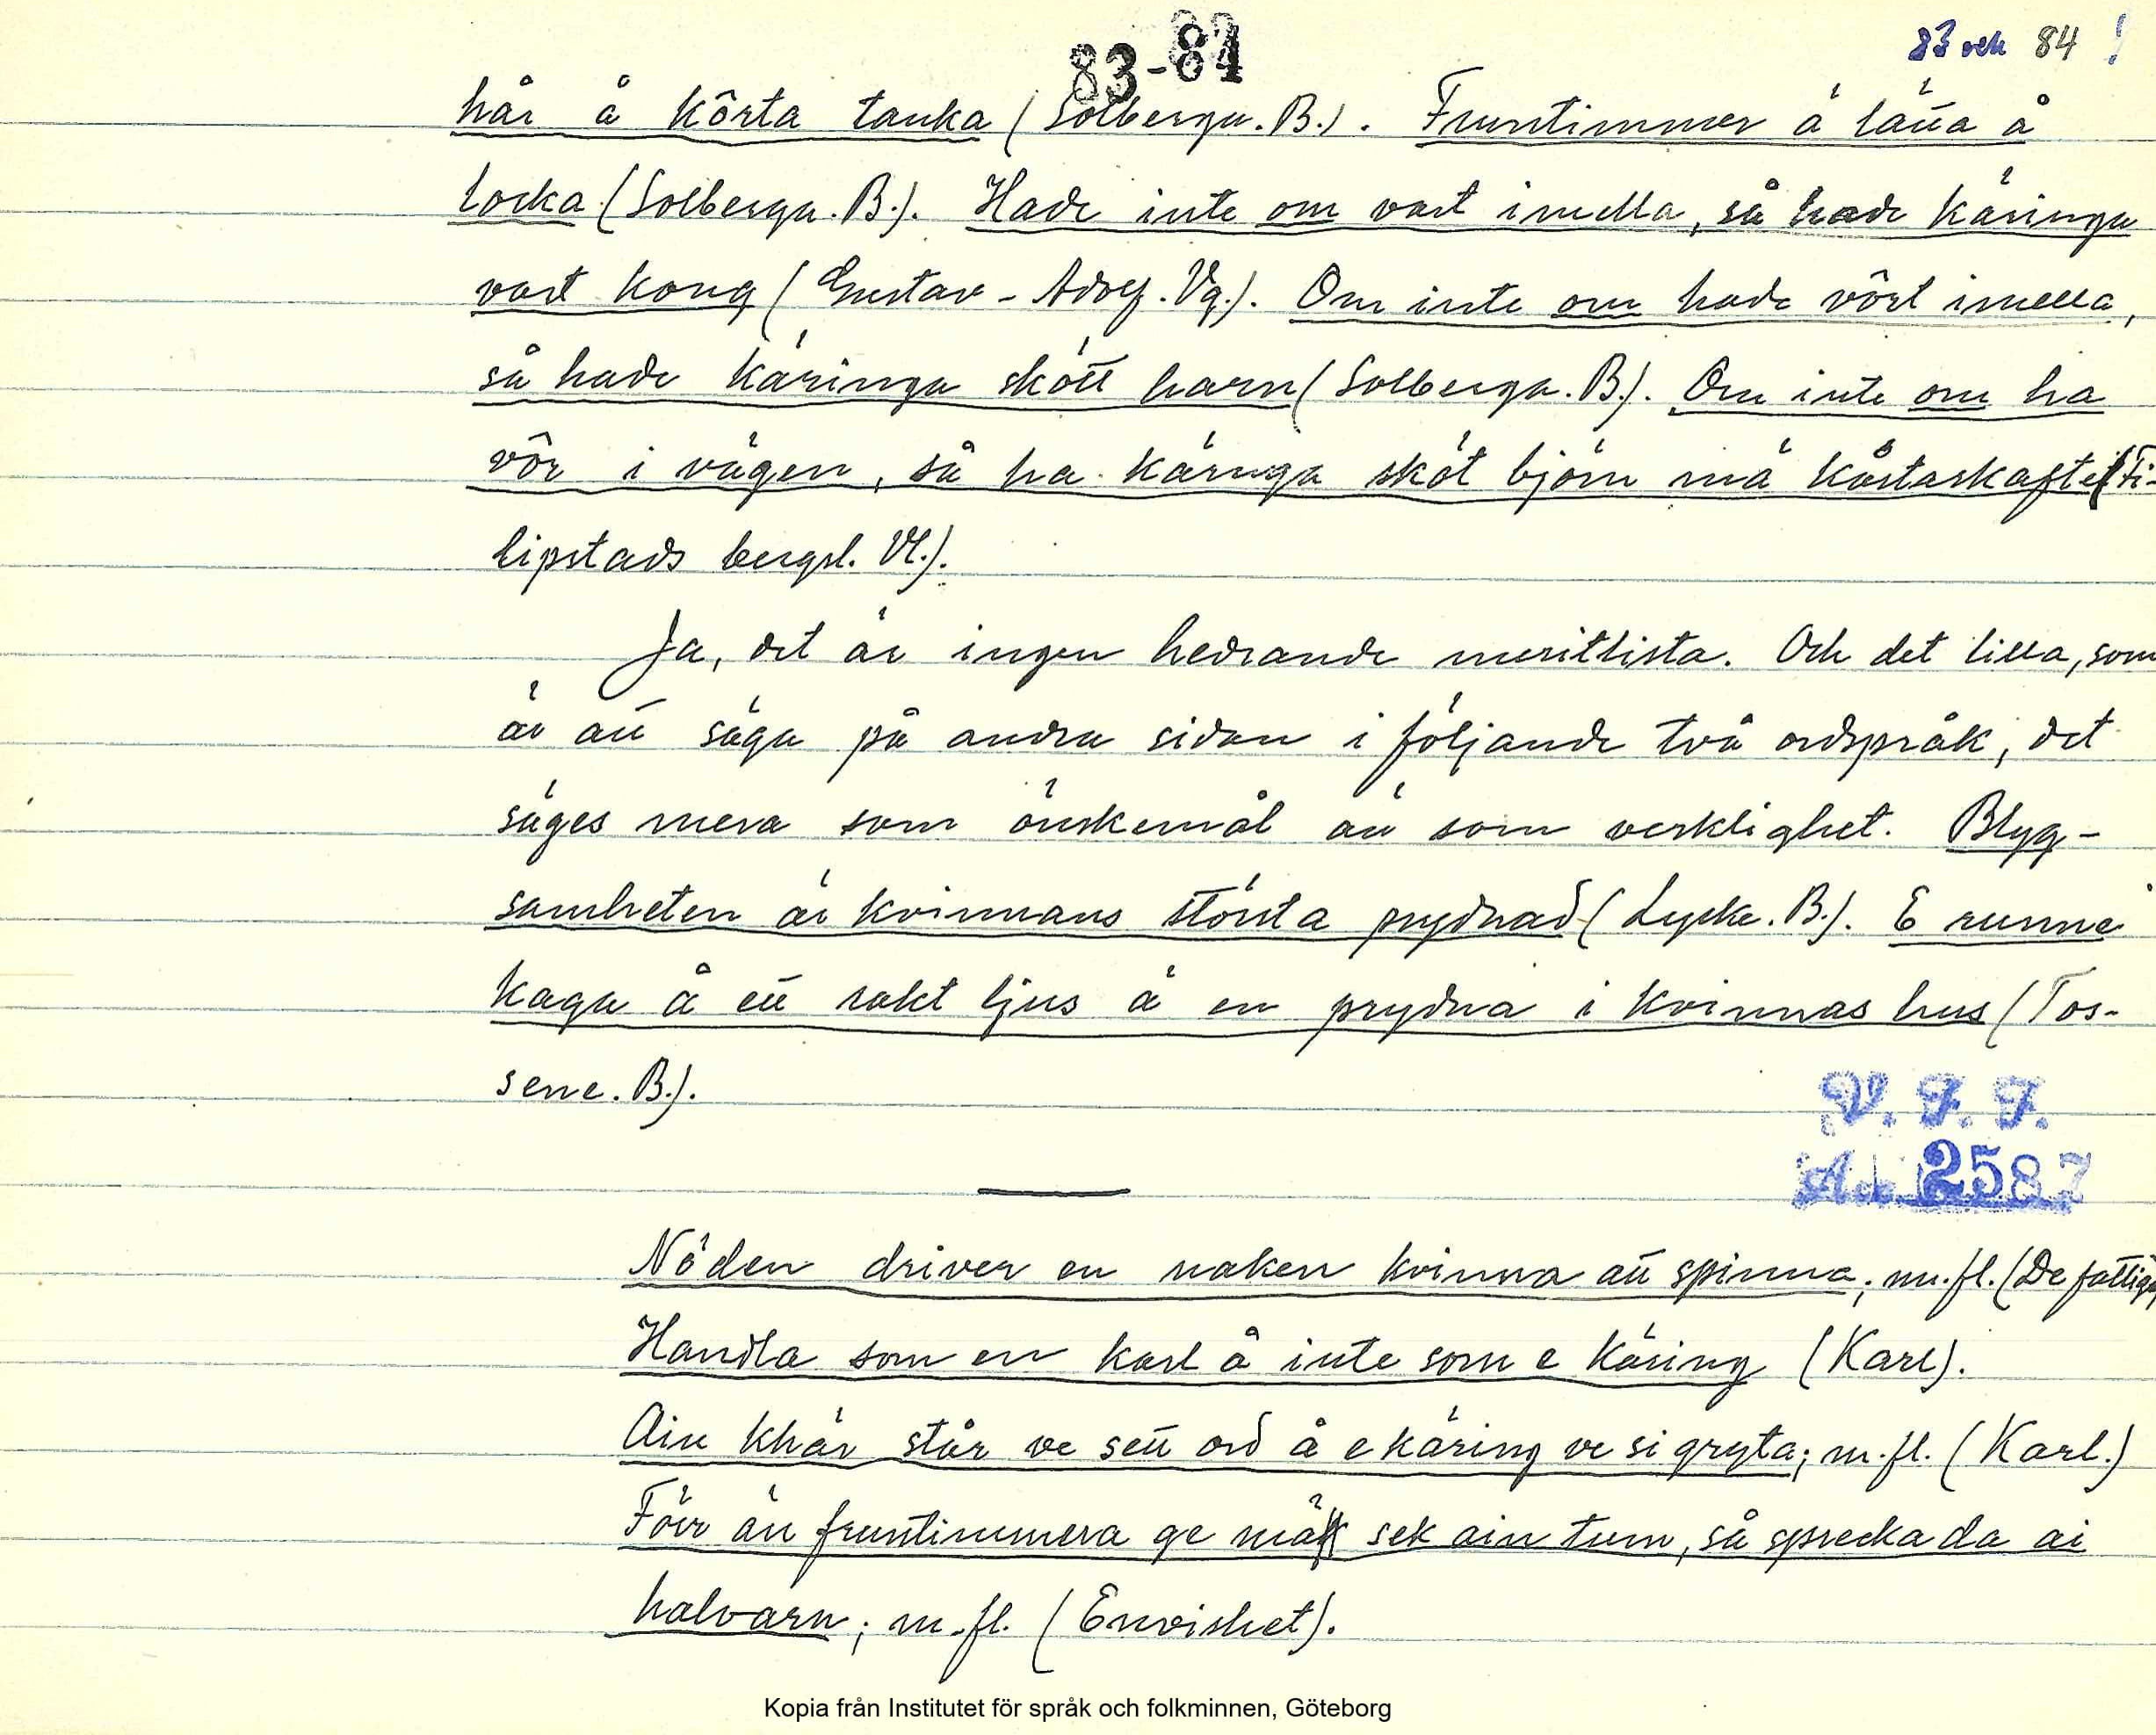 83-84
83 och 84 !
hår å kôrta tanka (Solberga. B.). Fruntimmer ä lätta å
locka (Solberga. B.). Hade inte om vart imella, så hade käringa
vart kong (Gustav-Adolf. Vg.). Om inte om hade vôrt imella,
så hade käringa skött harn (Solberga. B.). Om inte om ha
vôr i vägen, så ha käringa sköt björn mä kåstaskaftet (Fi-
lipstads bergsl. Vl.).
Ja, det är ingen hedrande meritlista. Och det lilla, som
är att säga på andra sidan i följande två ordspråk, det
säges mera som önskemål än som verklighet. Blyg-
samheten är kvinnans största prydnad (Lycke. B.). E runne
kaga å ett rakt ljus ä en prydna i kvinnas hus (Tos-
sene. B.).
V. F. F.
Acc 2587
Nöden driver en naken kvinna att spinna; m.fl. (De fattiga
Handla som en karl å inte som e käring (Karl).
Ain khär står ve sett ord å e käring ve si gryta; m.fl. (Karl.)
Förr än fruntimmera ge mä sek ain tum, så sprecka da ai
halvarn; m.fl. (Envishet).
Kopia från Institutet för språk och folkminnen, Göteborg